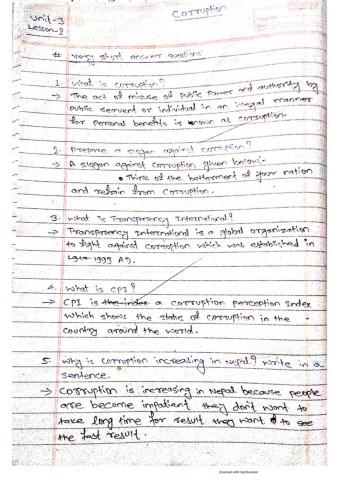 Corruption
Unit-3
Lesson-2
# Very short answer questions
1. What is corruption?
→ The act of misuse of public power and authority by
public servent or individual in an illegal manner
for personal benefits is known as corruption.
2. Prepare a slogan against corruption?
→ A slogan against corruption given below:-
• Think of the betterment of your nation
and refrain from corruption.
3. What is Transparency International?
→ Transparency International is a global organization
to fight against corruption which was established in
1993 AD.
4. What is CPI?
→ CPI is the index a corruption perception Index
which shows the state of corruption in the
country around the world.
5. Why is corruption increasing in Nepal? Write in a
sentence.
→ Corruption is increasing in Nepal because people
are become impatient they don't want to
take long time for result they want to see
the fast result.
Scanned with CamScanner